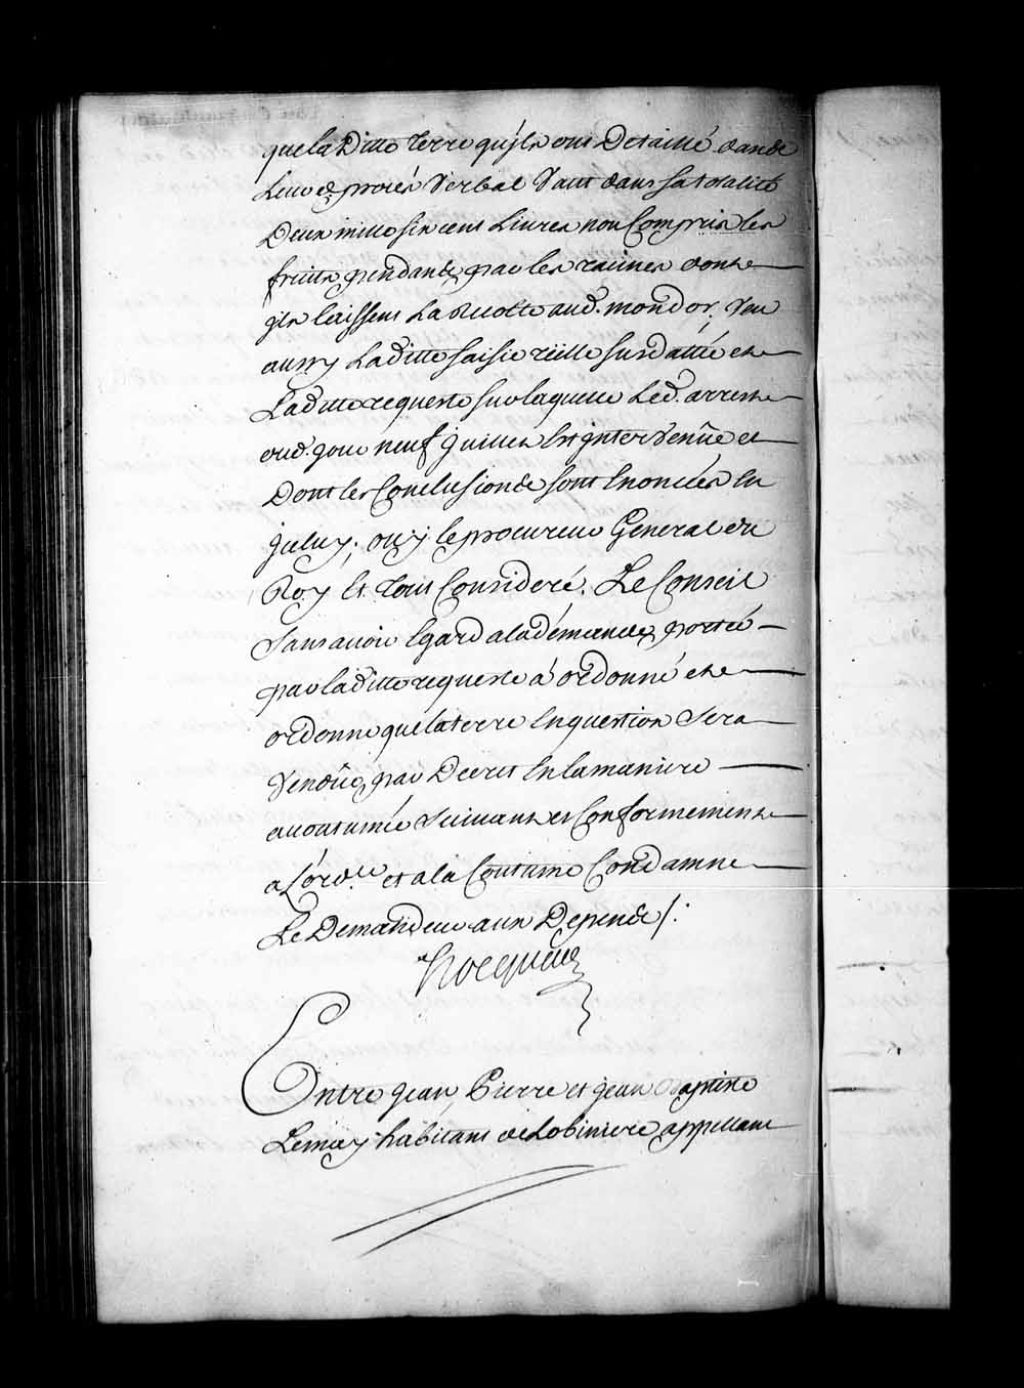 que la Ditte terre qu'jls ont Detaillé dans
Leurs procés Verbal Vaut dans sa totalité
Deux mille six cent Livres non Compris les
fruits pendants par les racines dont
jls laissent La Recolte aud. mondor, Veu
aussy Laditte saisie réélle susdattée et
Laditte requeste sur laquelle Led. arrest
oud. jour neuf juillet Est jntervenüe et
Dont les Conclusions sont Enoncées En
jceluy, ouy le procureur General du
Roy Et tout Consideré. Le Conseil
sans avoir Egard ala démande portée
par laditte requeste à ordonné et
ordonne que la terre En question sera
Vendüe par Decret En la maniere
accoutumée suivant et Conformement
a L'ord.ce et a la Coutume Condamne
Le Demandeur aux Depends /:
hocquart
Entre jean, Pierre et jean Baptiste
Lemay habitans de Lobiniere appellant